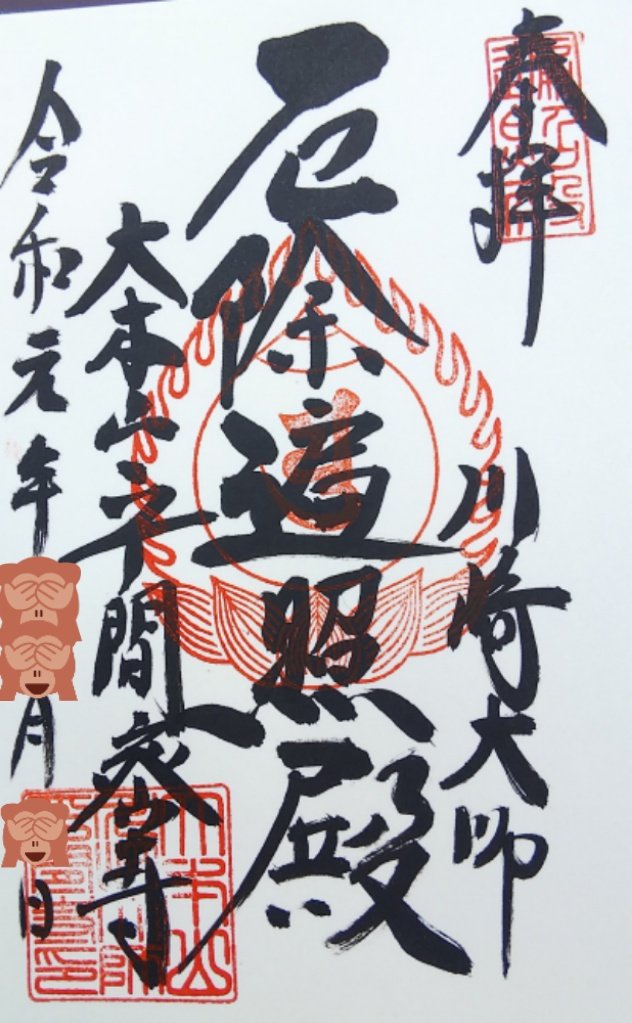 奉拝
川崎大師
厄除遍照殿
大本山平間密寺
令和元年 月 日